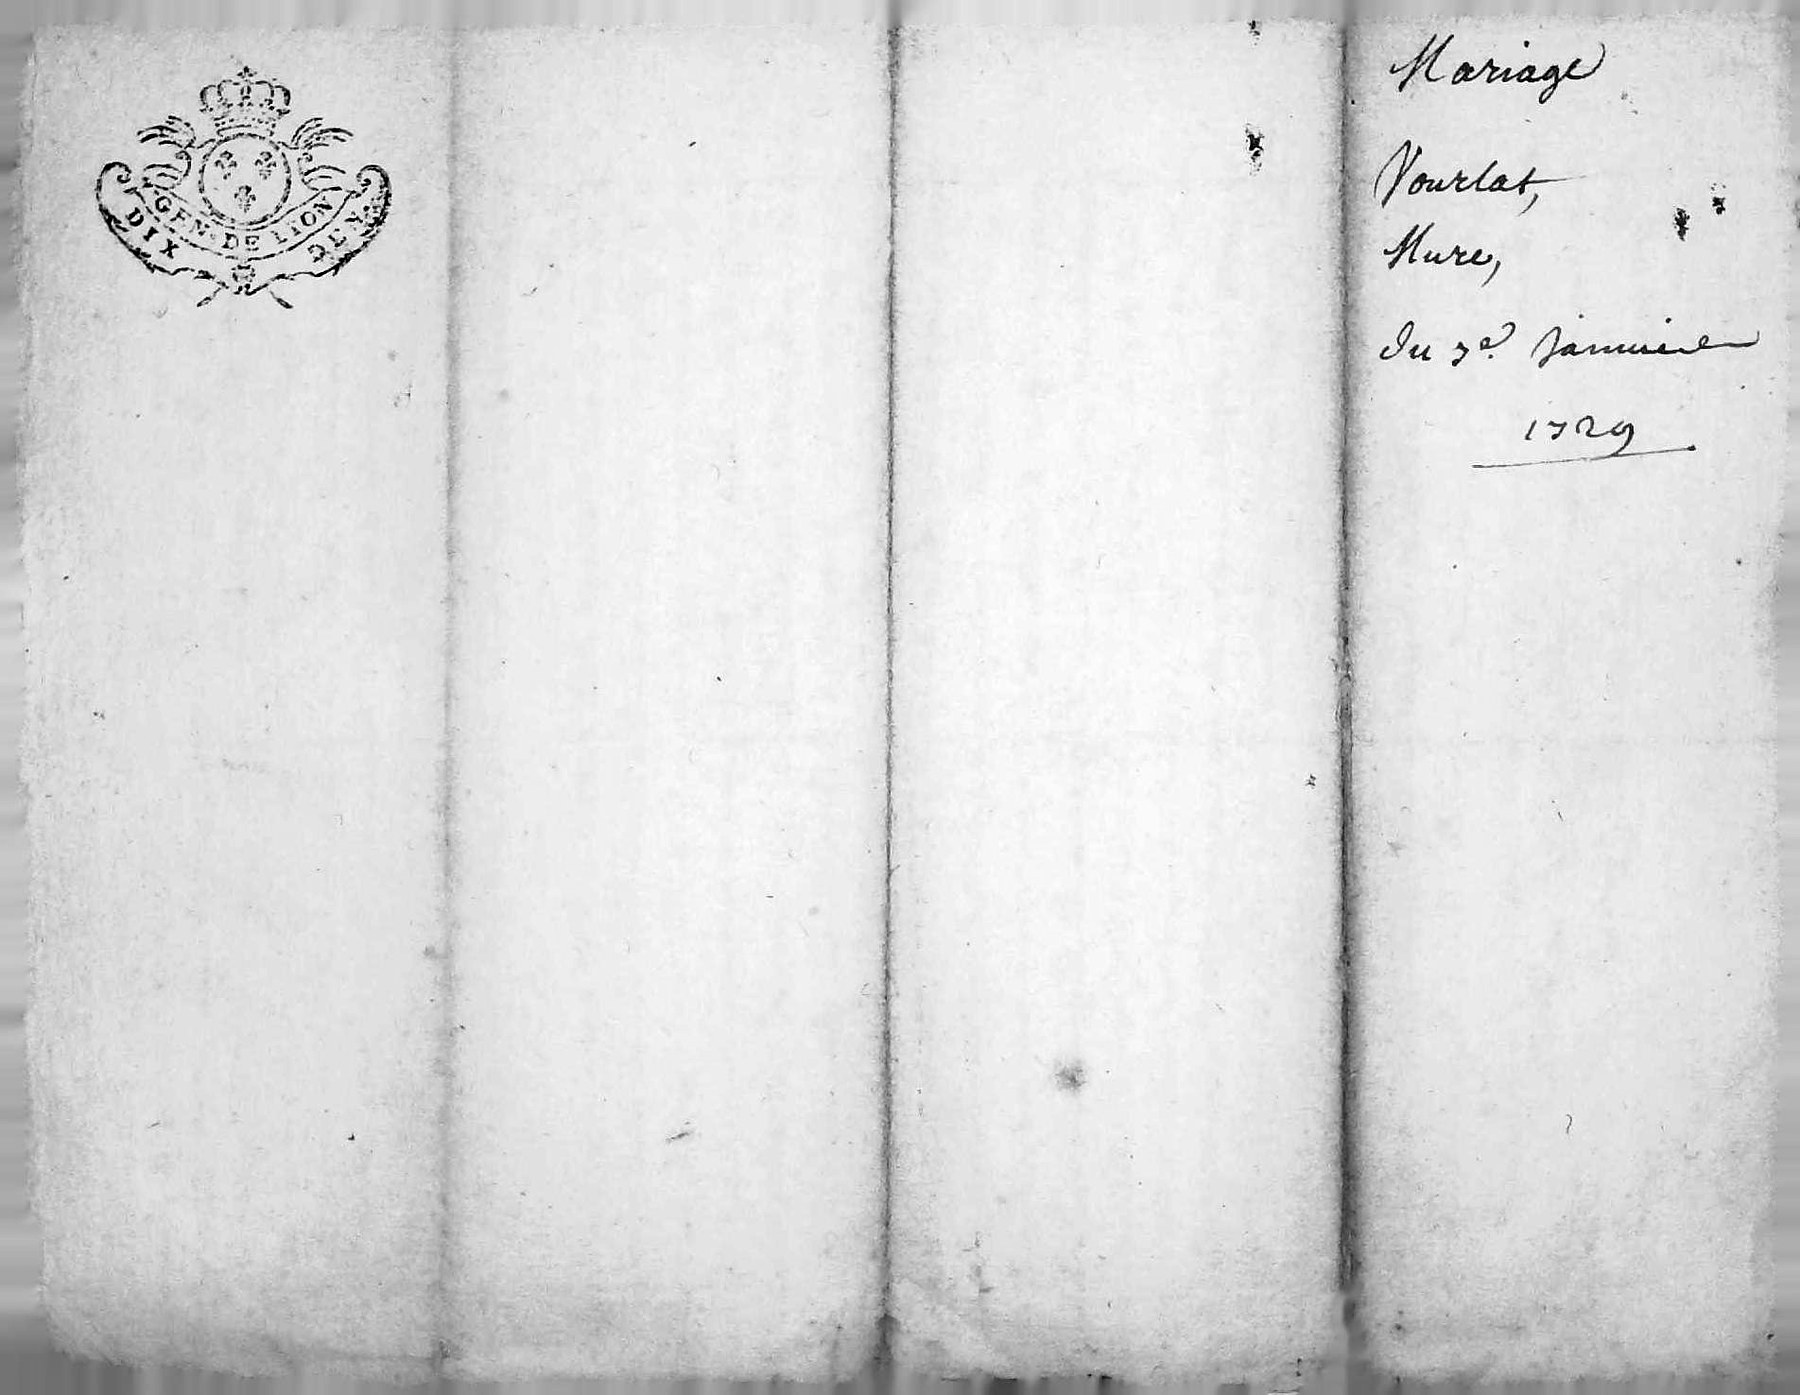 GEN. DE LION
DIX DEN.
Mariage
Vourlat,
Mure,
du 7e. janvier
1729